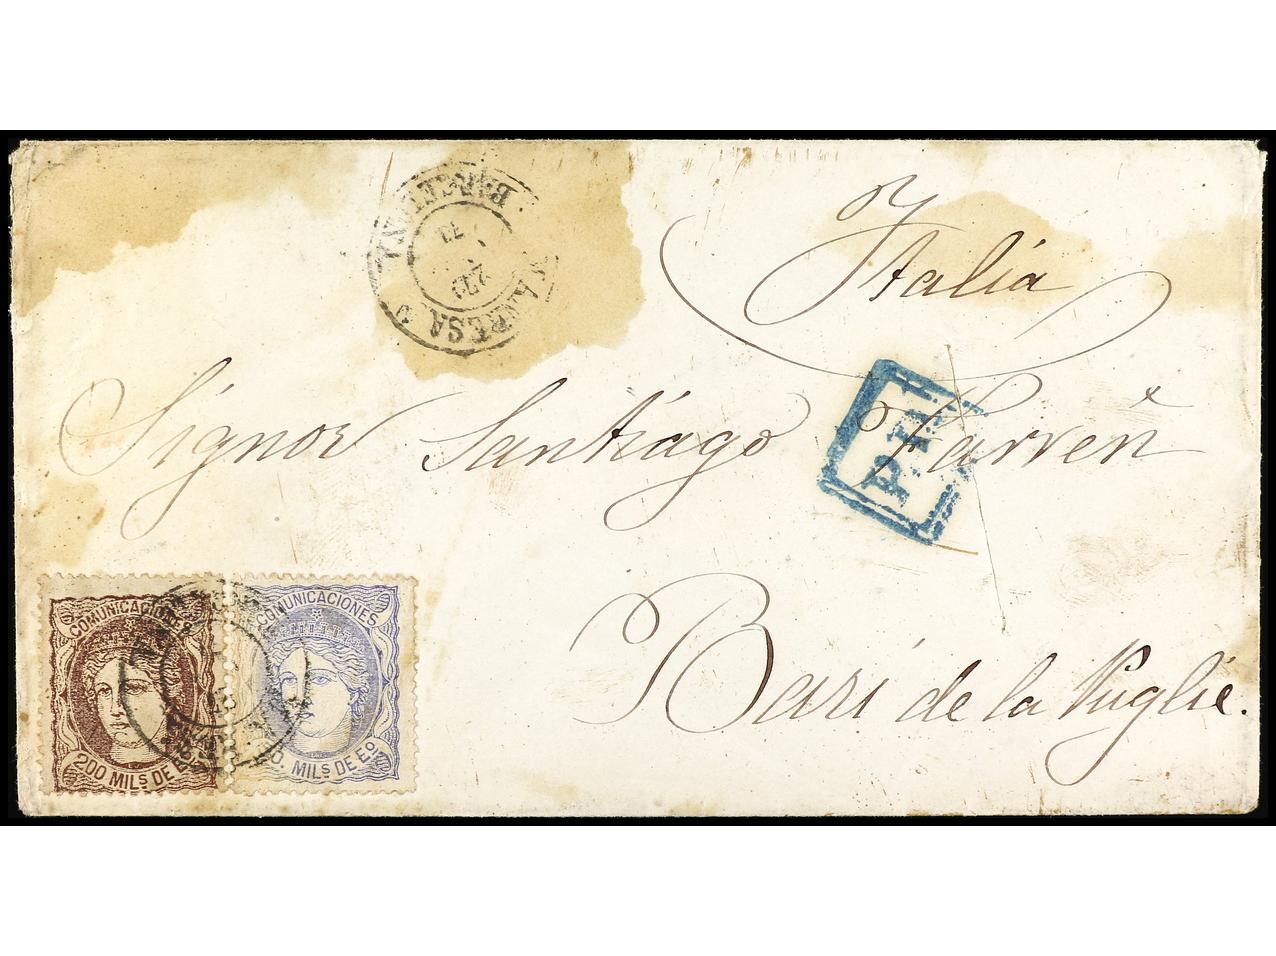 BARCELONA
MANRESA
Italia
Signor Santiago Farreñ
P.D.
Bari de la Puglie.
COMUNICACIONES
COMUNICACIONES
200 MILS DE Eo
0. MILS DE Eo